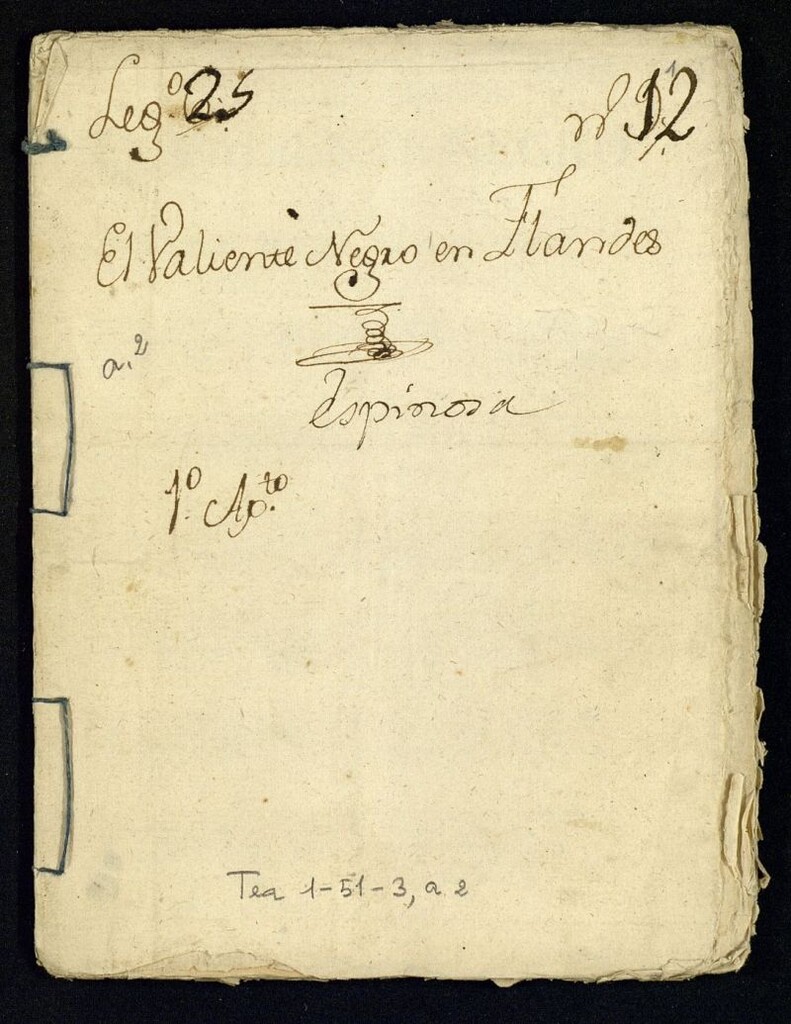 Leg.º 25
nº 12
El Valiente Negro en Flandes
a.2
Espinosa
1.º Ap.to
Tea 1-51-3, a 2